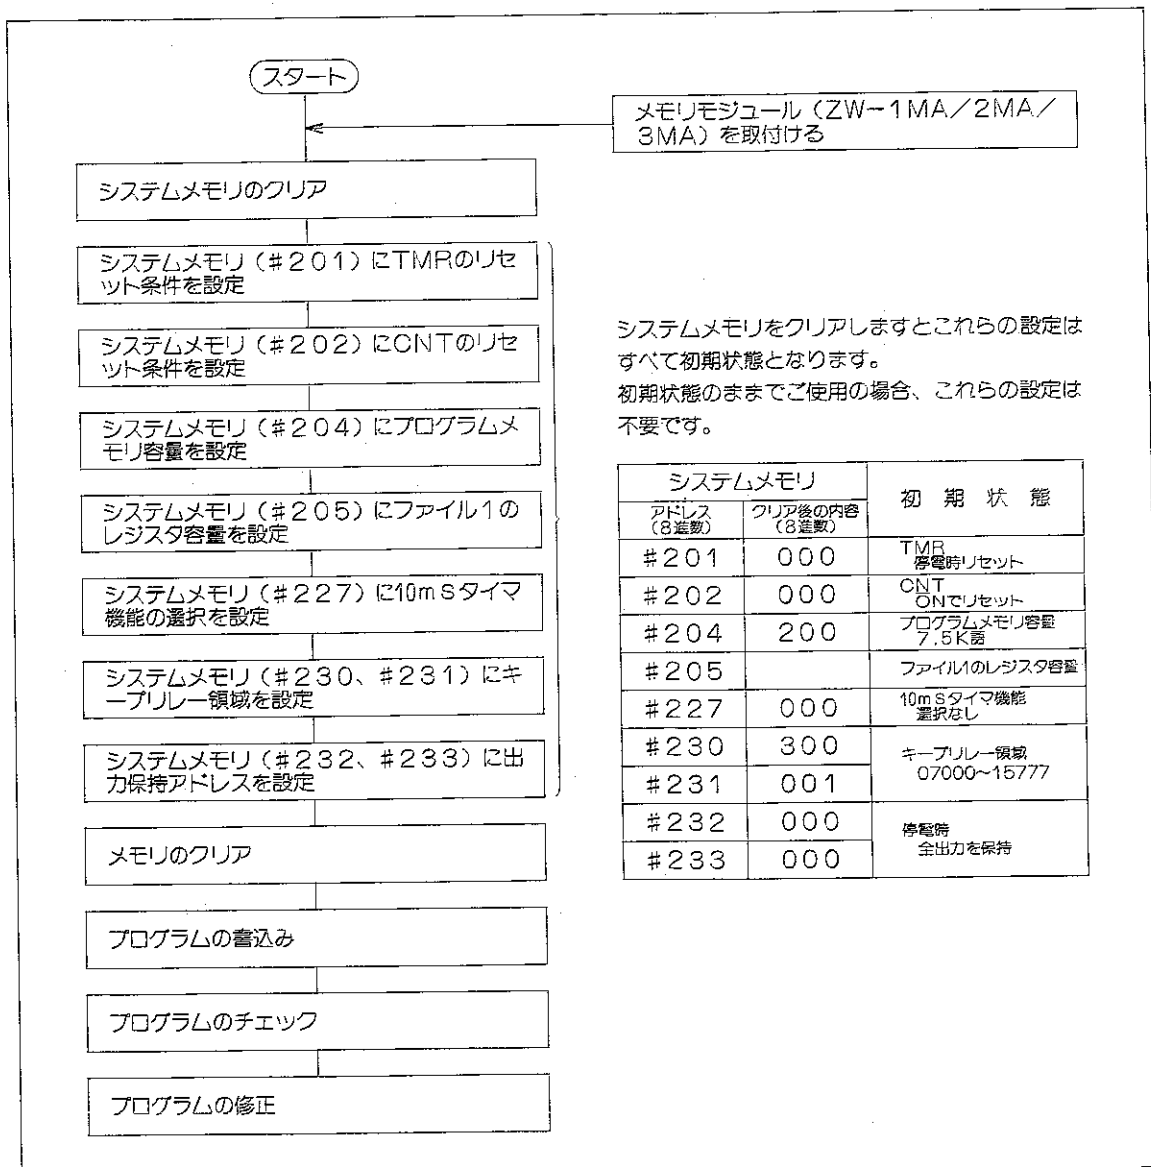 スタート
メモリモジュール（ZW-1MA／2MA／
3MA）を取付ける
システムメモリのクリア
システムメモリ（＃201）にTMRのリセ
ット条件を設定
システムメモリ（＃202）にCNTのリセ
ット条件を設定
システムメモリ（＃204）にプログラムメ
モリ容量を設定
システムメモリ（＃205）にファイル1の
レジスタ容量を設定
システムメモリ（＃227）に10mSタイマ
機能の選択を設定
システムメモリ（＃230、＃231）にキ
ープリレー領域を設定
システムメモリ（＃232、＃233）に出
力保持アドレスを設定
メモリのクリア
プログラムの書込み
プログラムのチェック
プログラムの修正
システムメモリをクリアしますとこれらの設定は
すべて初期状態となります。
初期状態のままでご使用の場合、これらの設定は
不要です。
システムメモリ 初期状態
アドレス クリア後の内容
（8進数） （8進数）
＃201 000 TMR
停電時リセット
＃202 000 CNT
ONでリセット
＃204 200 プログラムメモリ容量
7.5K語
＃205 ファイル1のレジスタ容量
＃227 000 10mSタイマ機能
選択なし
＃230 300 キープリレー領域
＃231 001 07000~15777
＃232 000 停電時
＃233 000 全出力を保持